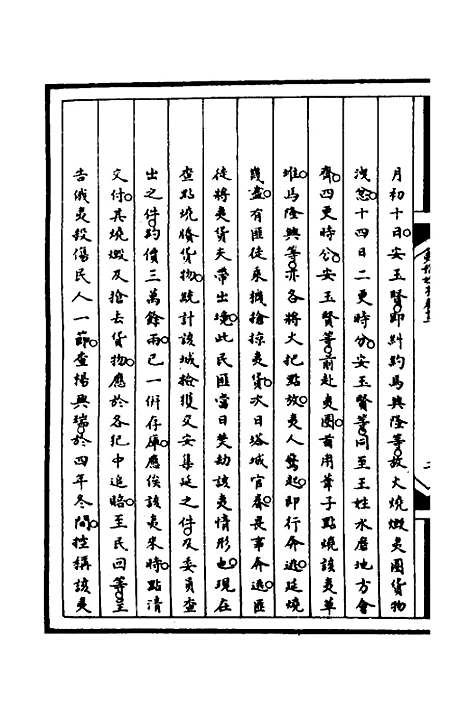 月初十日安玉賢即糾約馬興隆等放火燒燬夷圈貨物
洩忿十四日二更時分安玉賢等同至王姓水磨地方會
齊四更時分安玉賢等前赴夷圈首用葦子點燒該夷草
堆馬隆興等亦各將火把點放夷人驚起即行奔逃延燒
幾盡有匪徒乘機搶掠夷貨次日塔城官屬畏事奔逃匪
徒將夷貨夾帶出境此民匪當日焚劫該夷情形也現在
查點燒賸貨物統計該城搶獲又安集延之件及委員查
出之件約價三萬餘兩已一併存庫應俟該夷來時點清
交付其燒燬及搶去貨物應於各犯中追賂至民回等呈
告俄夷殺傷民人一節查楊興瑞於四年冬間控稱該夷